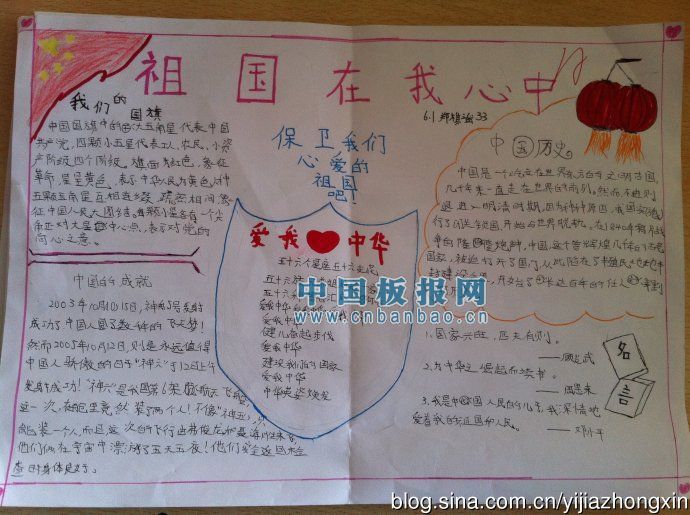 祖国在我心中
6.1 33
我们的国旗
中国国旗中的大五角星代表中国
共产党,四颗小五星代表工人、农民、小资
产阶级四个阶级,旗面为红色,象征
革命,星呈黄色,表示中华人民为黄色人种
五颗五角星互相连缀、疏密相间,象
征中国人民大团结。每颗小星各有一个尖
角正对大星中心点,表示对党的
同心之意。
中国的成就
2003年10月15日,神舟5号发射
成功!中国人圆了数千年的飞天梦!
然而2005年10月12日,则是永远值得
中国人骄傲的日子"神六"于12日上午
发射成功!"神六"是我国第6架
这一次,在舱里竟然装了两个人!不像"神五",只
能装一个人,而且这次的飞行
他们俩在宇宙中漂游了五天五夜!他们安全返回
查时身体良好。
保卫我们
心爱的
祖国
吧!
爱我❤中华
五十六个星座五十六
五十六
爱我中华
健儿奋起步伐
爱我中华
建设我们的国家
爱我中华
中华英姿焕发
中国历史
中国是一个
几千年来一直走在世界的前列。然而,不进则
退,进入明清时期,因为种种原因,我国
行了闭关锁国,开始与世界脱轨。在1840年鸦片战
争的隆隆炮声中,中国,这个曾辉煌几千年的古老
国家,被迫打开了国门,从此陷在了半殖民地半
封建
1.国家兴旺,匹夫有则。
——顾炎武
2.为中华之崛起而读书。
——周恩来
3.我是中国人民的儿子,我深情地
爱着我的祖国和人民。
——邓小平
名言
中国板报网
www.cnbanbao.cn
blog.sina.com.cn/yijiazhongxin